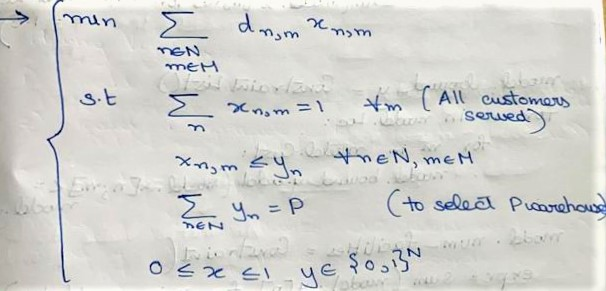 → min ∑ d n,m x n,m
n∈N
m∈M
s.t ∑ x n,m = 1 ∀m (All customers
n served)
x n,m ≤ y n ∀n∈N, m∈M
∑ y n = P (to select P warehouse
n∈N
0 ≤ x ≤ 1 y ∈ {0,1}^N